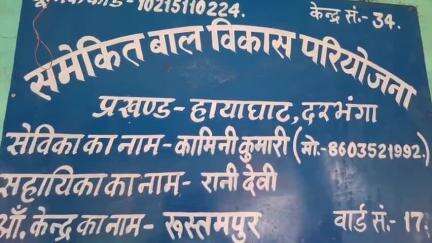 कोड- 10215110224. केन्द्र सं.- 34.
समेकित बाल विकास परियोजना
प्रखण्ड- हायाघाट, दरभंगा
सेविका का नाम- कामिनी कुमारी (मो.-8603521992.)
सहायिका का नाम- रानी देवी
आँ. केन्द्र का नाम- रूस्तमपुर वार्ड सं.- 17